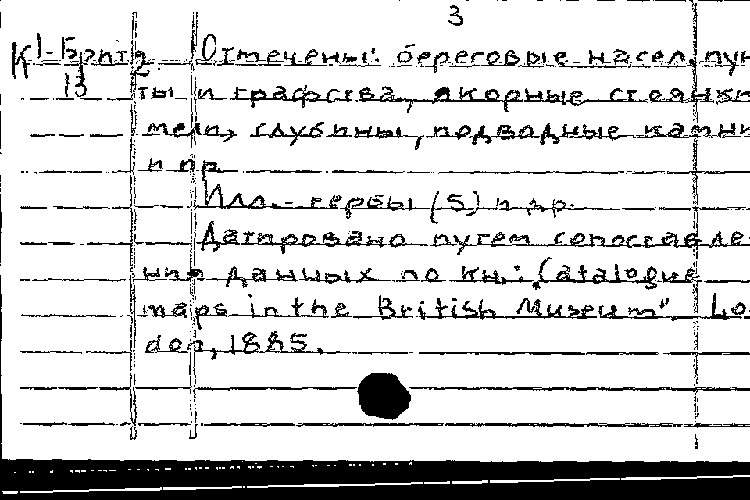 3
К 1-Брит 2. Отмечены: береговые насел. пун
13 ты и графства, якорные стоянки
мели, глубины, подводные камни
и пр.
Илл. - гербы (5) и др.
Датировано путем сопоставле-
ния данных по кн.: "Catalogue
maps in the British Museum". Lo
don, 1885.